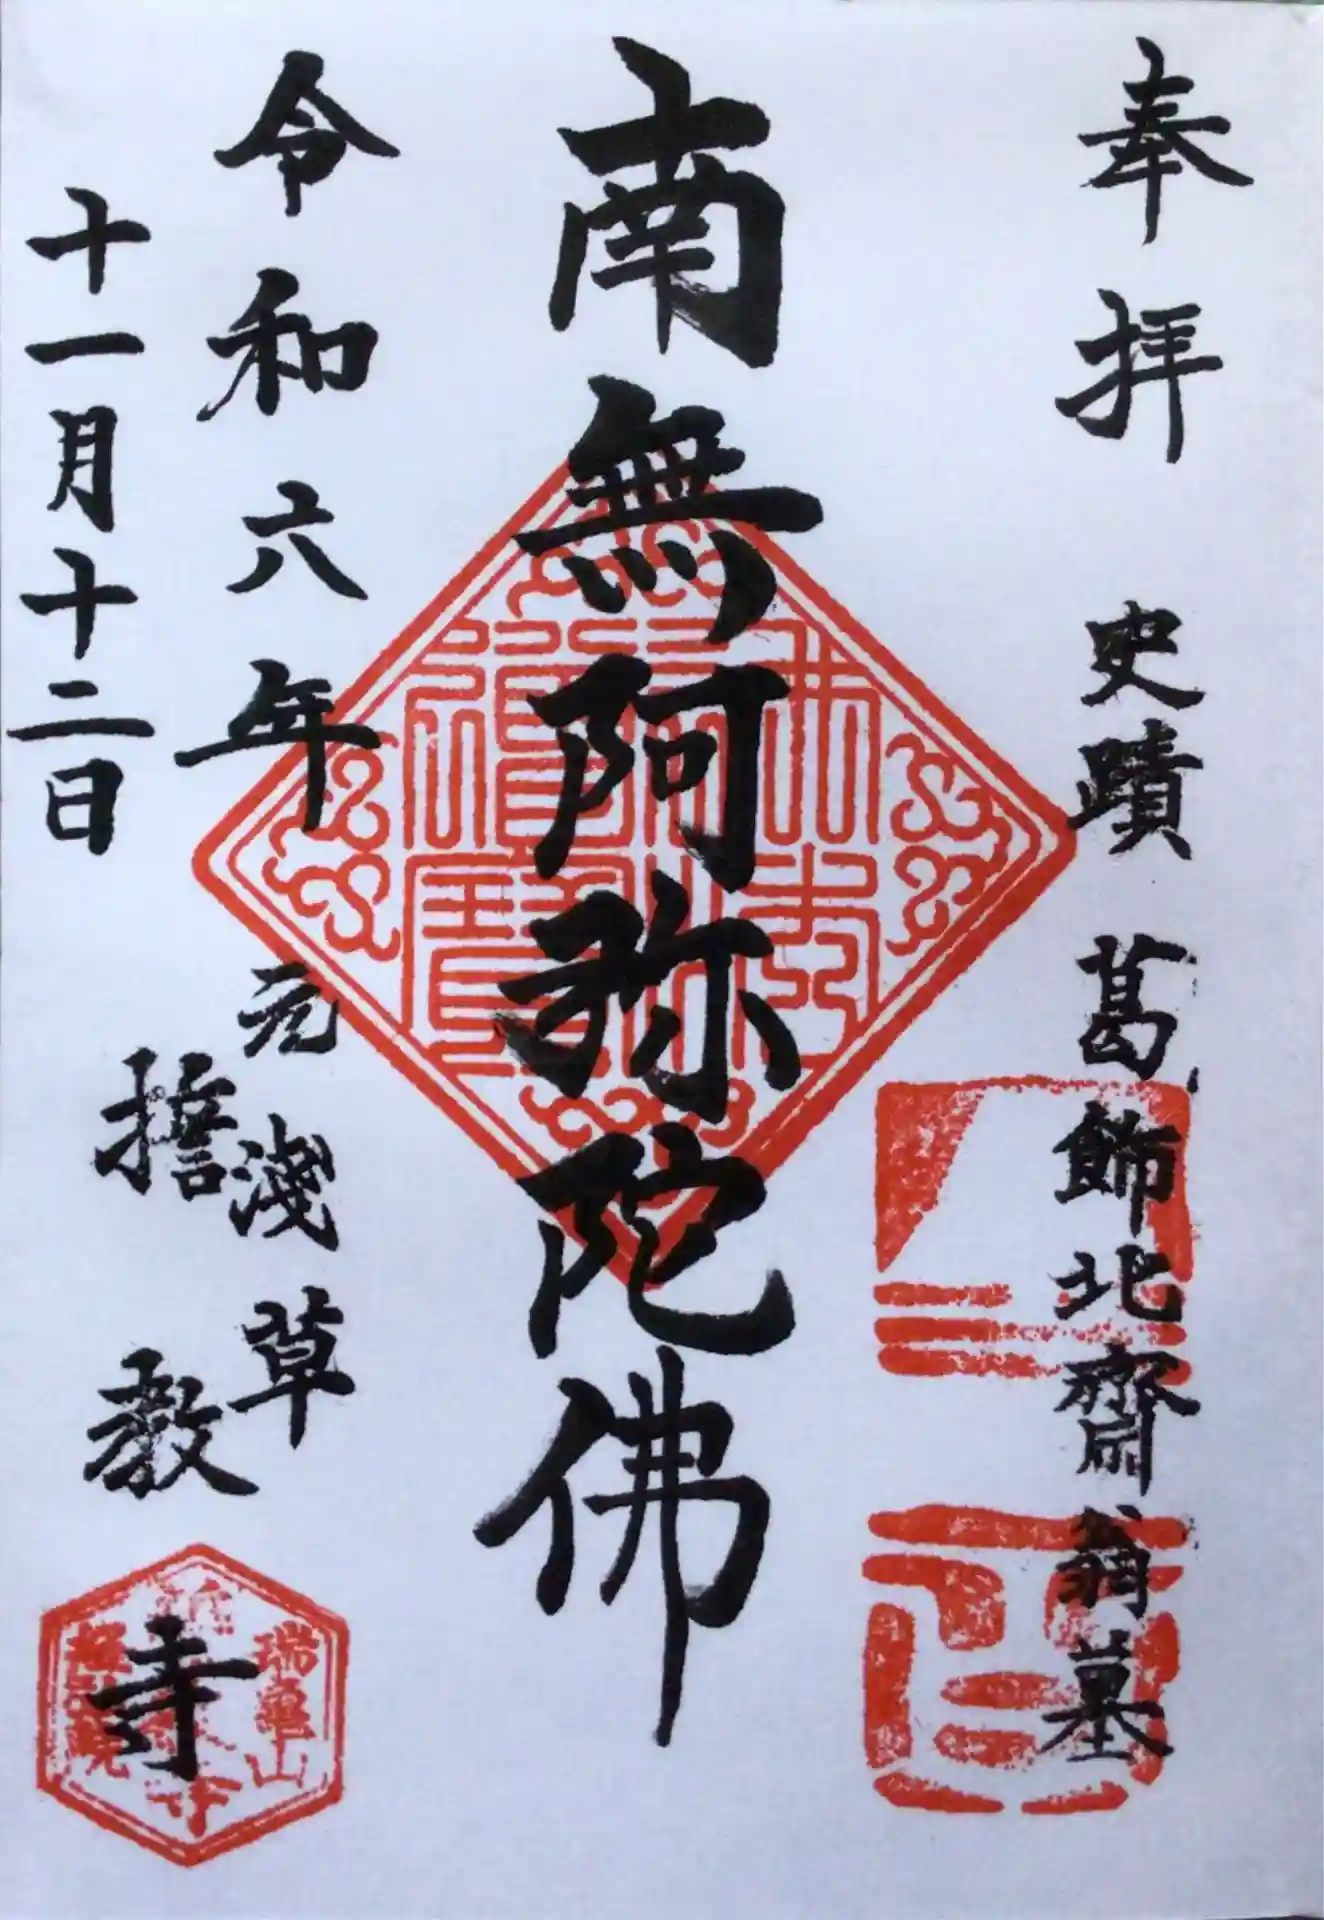 奉拝
史蹟 葛飾北齋翁墓
南無阿弥陀佛
令和六年
十一月十二日
元淺草
誓教寺
瑞亀山